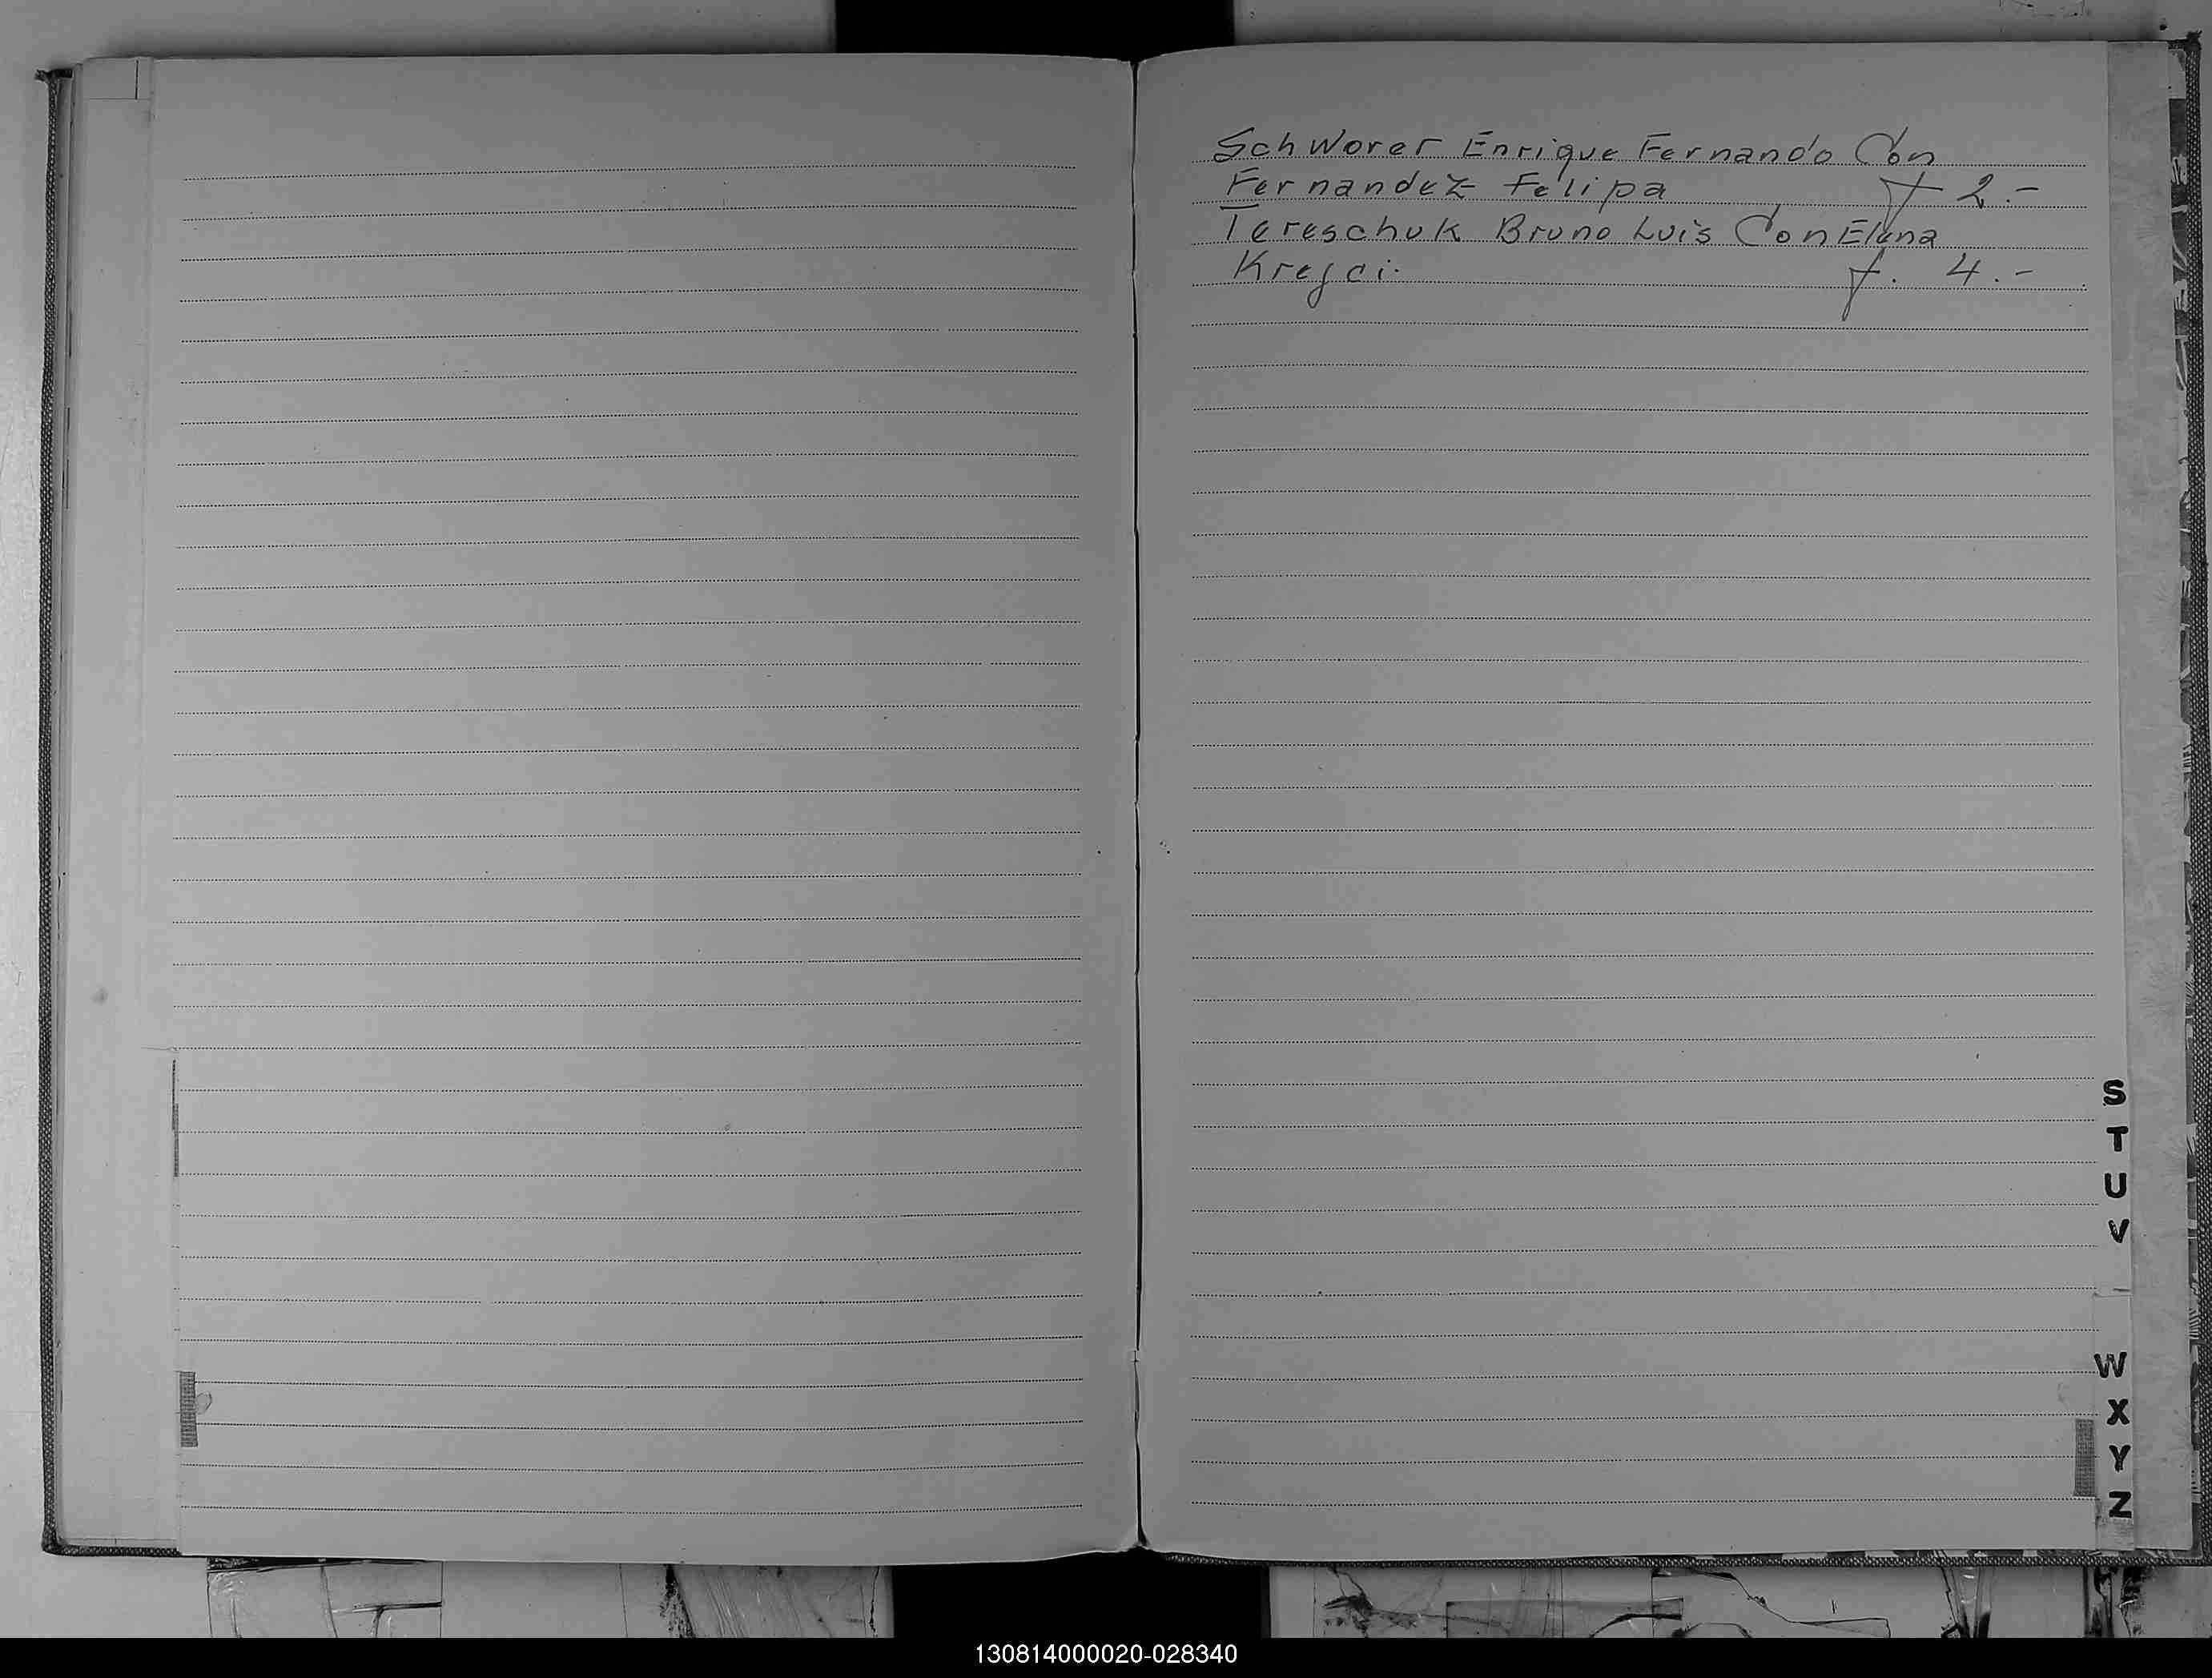 Schworer Enrique Fernando Con
Fernandez Felipa f 2.-
Tereschuk Bruno Luis Con Elena
Krejci. f. 4.-
S
T
U
V
W
X
Y
Z
130814000020-028340